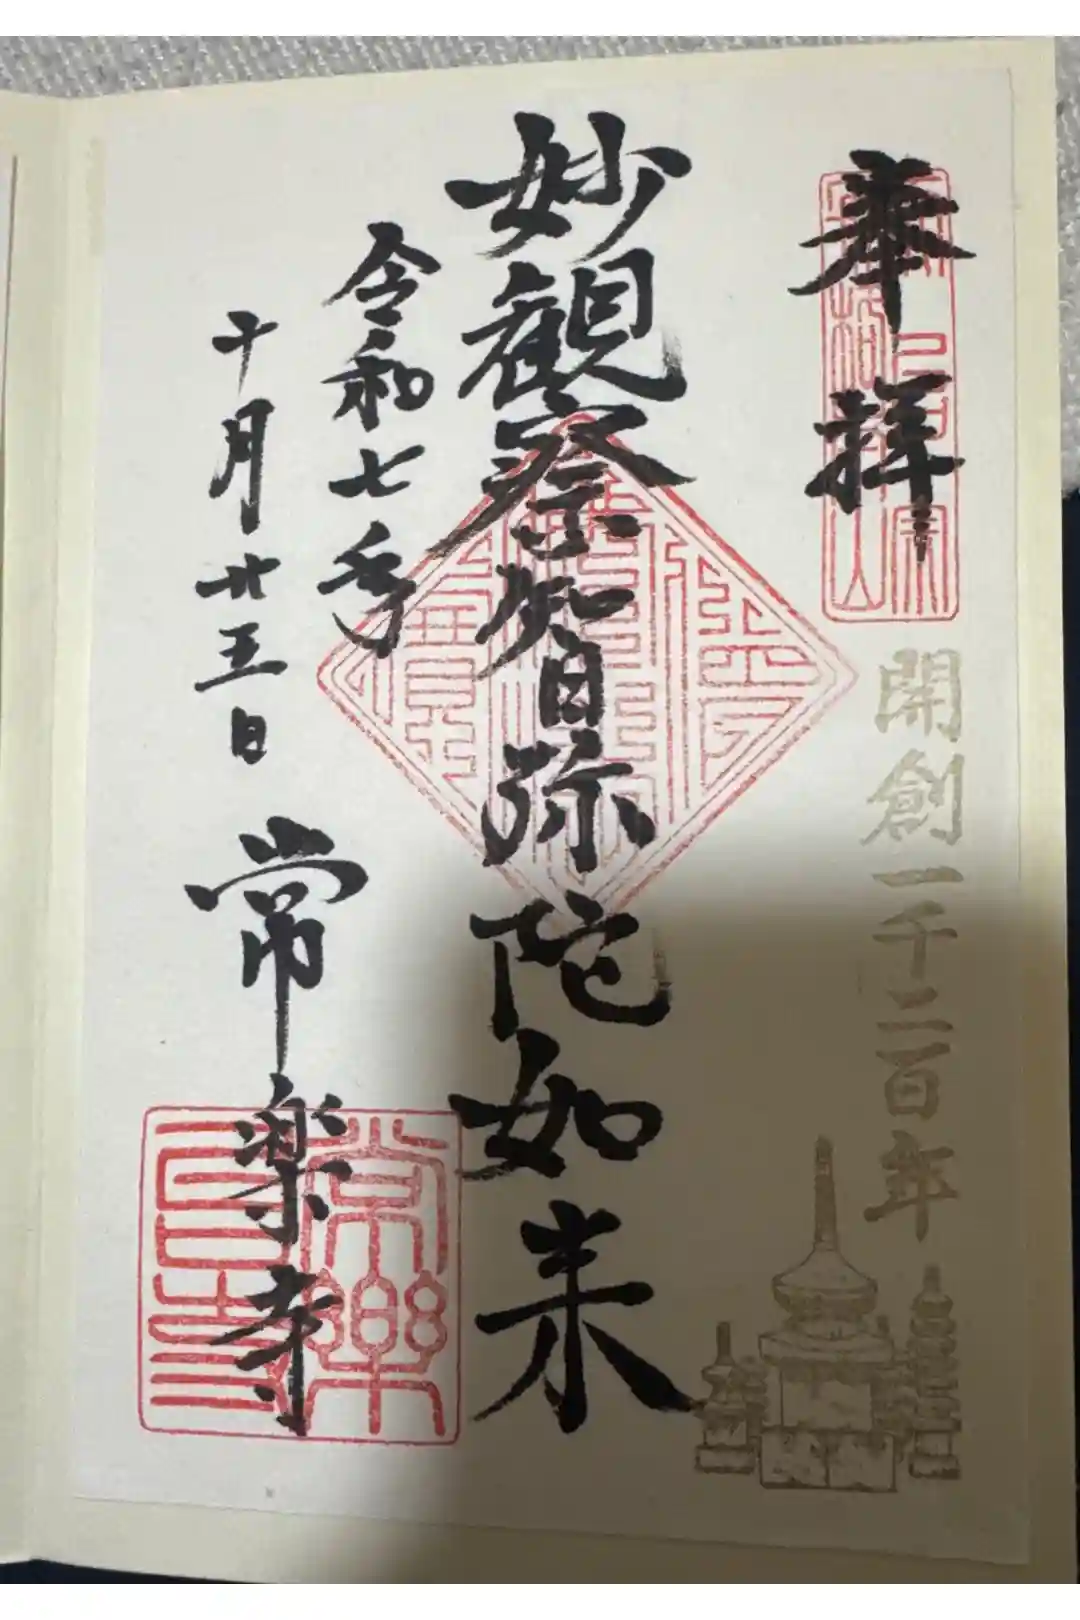 奉拝
開創一千二百年
妙観察智弥陀如来
令和七年
十月廿五日
常楽寺
常樂